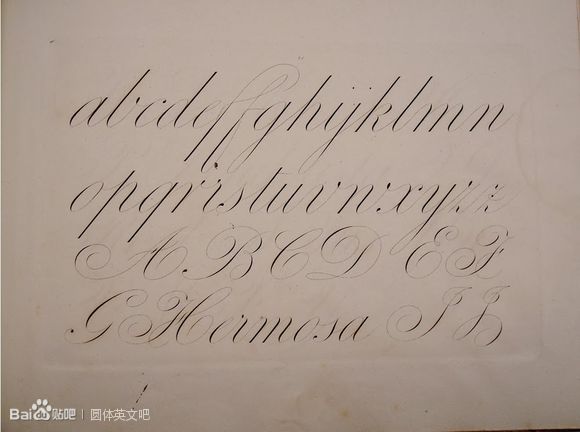 abcdeffghijklmn
opqrrstuvw:xyzz
A B C D E F
G Hermosa I J
Bai贴吧 | 圆体英文吧